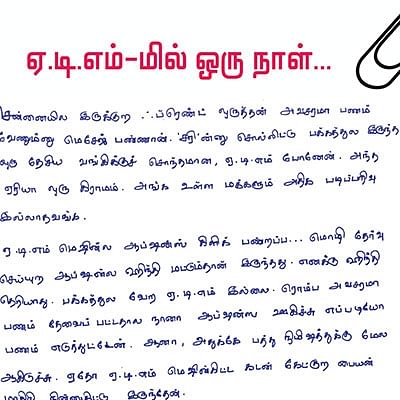 ஏ.டி.எம்-மில் ஒரு நாள்...
சென்னையில இருக்குற ஃப்ரெண்ட் ஒருத்தன் அவசரமா பணம்
வேணும்னு மெசேஜ் பண்ணான். 'சரி'ன்னு சொல்லிட்டு பக்கத்துல இருந்த
ஒரு தேசிய வங்கிக்குச் சொந்தமான, ஏ.டி.எம் போனேன். அந்த
ஏரியா ஒரு கிராமம். அங்க உள்ள மக்களும் அதிக படிப்பறிவு
இல்லாதவங்க.
ஏ.டி.எம் மெஷின்ல ஆப்ஷன்ஸ் கிளிக் பண்றப்ப... மொழி தேர்வு
செய்யுற ஆப்ஷன்ல ஹிந்தி மட்டும்தான் இருந்தது. எனக்கு ஹிந்தி
தெரியாது. பக்கத்துல வேற ஏ.டி.எம் இல்லை. ரொம்ப அவசரமா
பணம் தேவைப்பட்டதால நானா ஆப்ஷன்ஸ ஊகிச்சு எப்படியோ
பணம் எடுத்துட்டேன். ஆனா, அதுக்கே பத்து நிமிஷத்துக்கு மேல
ஆகிடுச்சு. ஏதோ ஏ.டி.எம் மெஷின்கிட்ட கடன் கேட்குற பையன்
மாதிரி நின்னுகிட்டு இருந்தேன்.